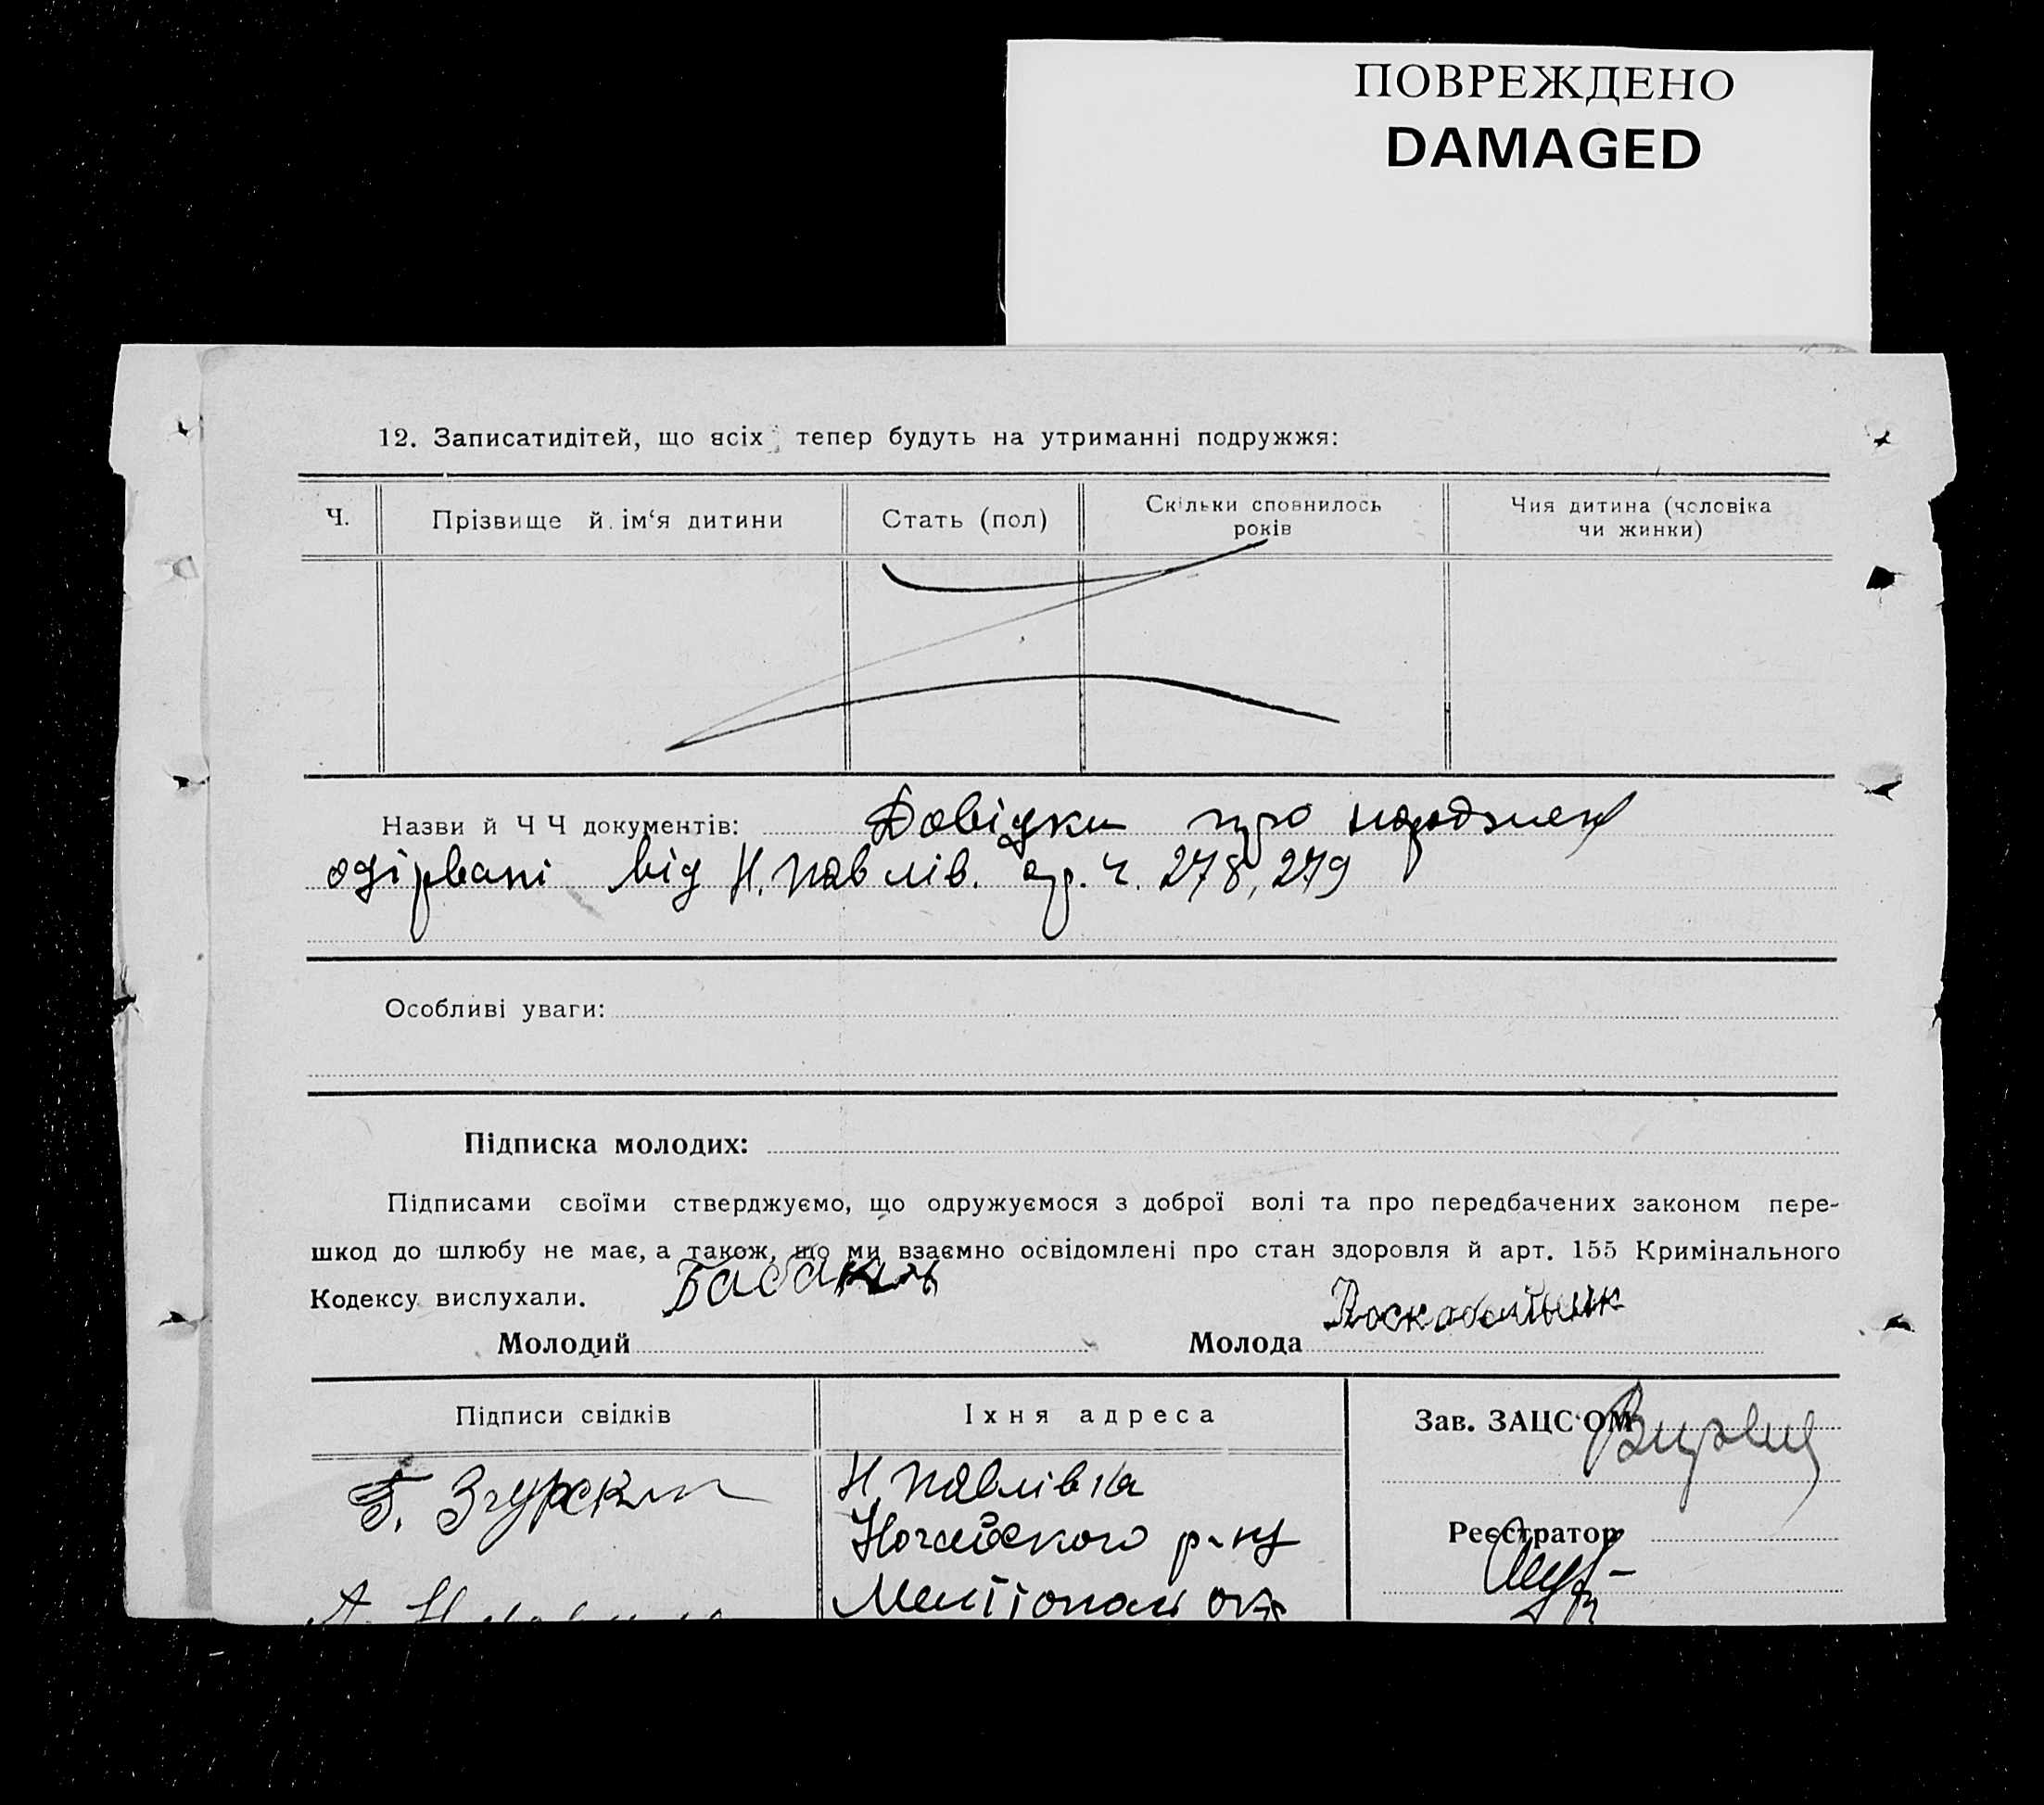 ПОВРЕЖДЕНО
DAMAGED
12. Записатидітей, що всіх тепер будуть на утриманні подружжя:
Ч.
Прізвище й ім‘я дитини
Стать (пол)
Скільки сповнилось
років
Чия дитина (чоловіка
чи жинки)
Назви й Ч Ч документів: Довідки про народжен
одірвані від Н. Павлів. ч. 278, 279
Особливі уваги:
Підписка молодих:
Підписами своїми стверджуємо, що одружуємося з доброї волі та про передбачених законом пере-
шкод до шлюбу не має, а також, що ми взаємно освідомлені про стан здоровля й арт. 155 Кримінального
Кодексу вислухали.
Молодий Бабакін
Молода Роскобойник
Підписи свідків
Їхня адреса
Зав. ЗАЦС‘ОМ
Г. Згурский
Н. Павлівка
Ногайського р-ну
Реєстратор